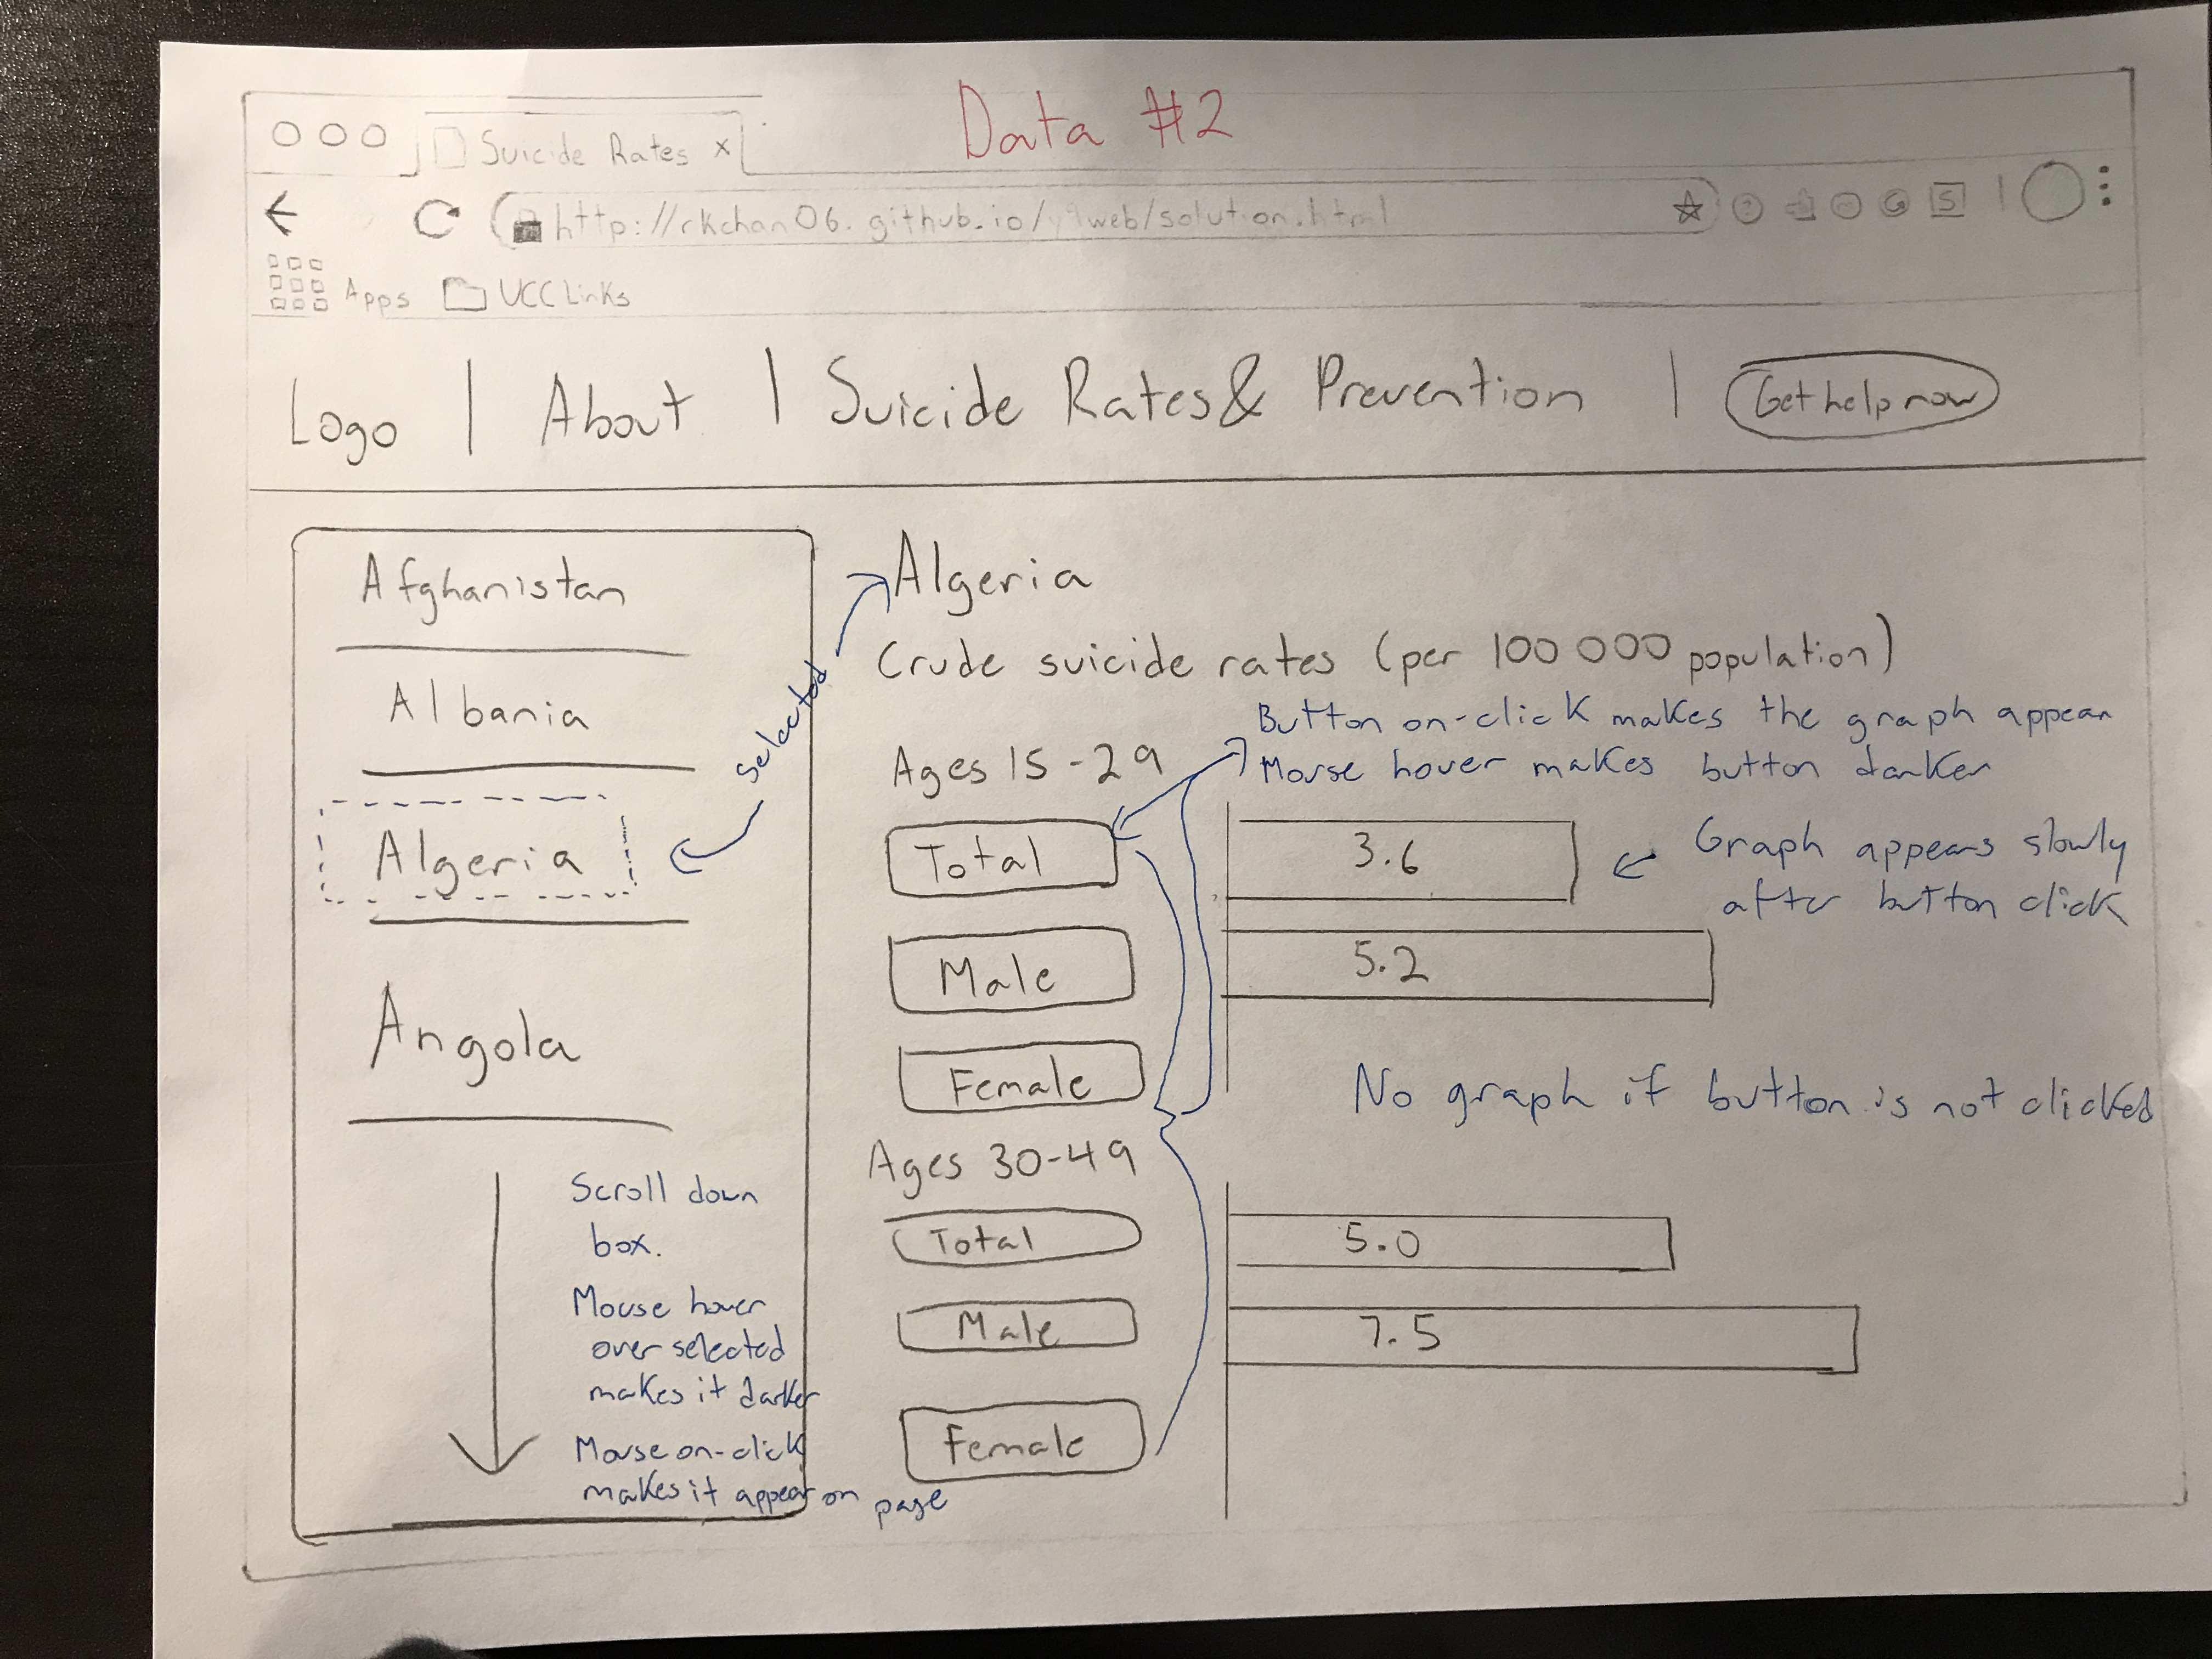 Data #2
Suicide Rates x
http://rkchan06.github.io/19web/solution.html
S
Apps UCC Links
Logo | About | Suicide Rates & Prevention | Get help now
Afghanistan
Albania
Algeria
Angola
Scroll down
box.
Mouse hover
over selected
makes it darker
Mouse on-click
makes it appear on page
Algeria
Crude suicide rates (per 100 000 population)
Button on-click makes the graph appear
Mouse hover makes button darker
Ages 15-29
Total
3.6
Graph appears slowly
after button click
Male
5.2
Female
No graph if button is not clicked
Ages 30-49
Total
5.0
Male
7.5
Female